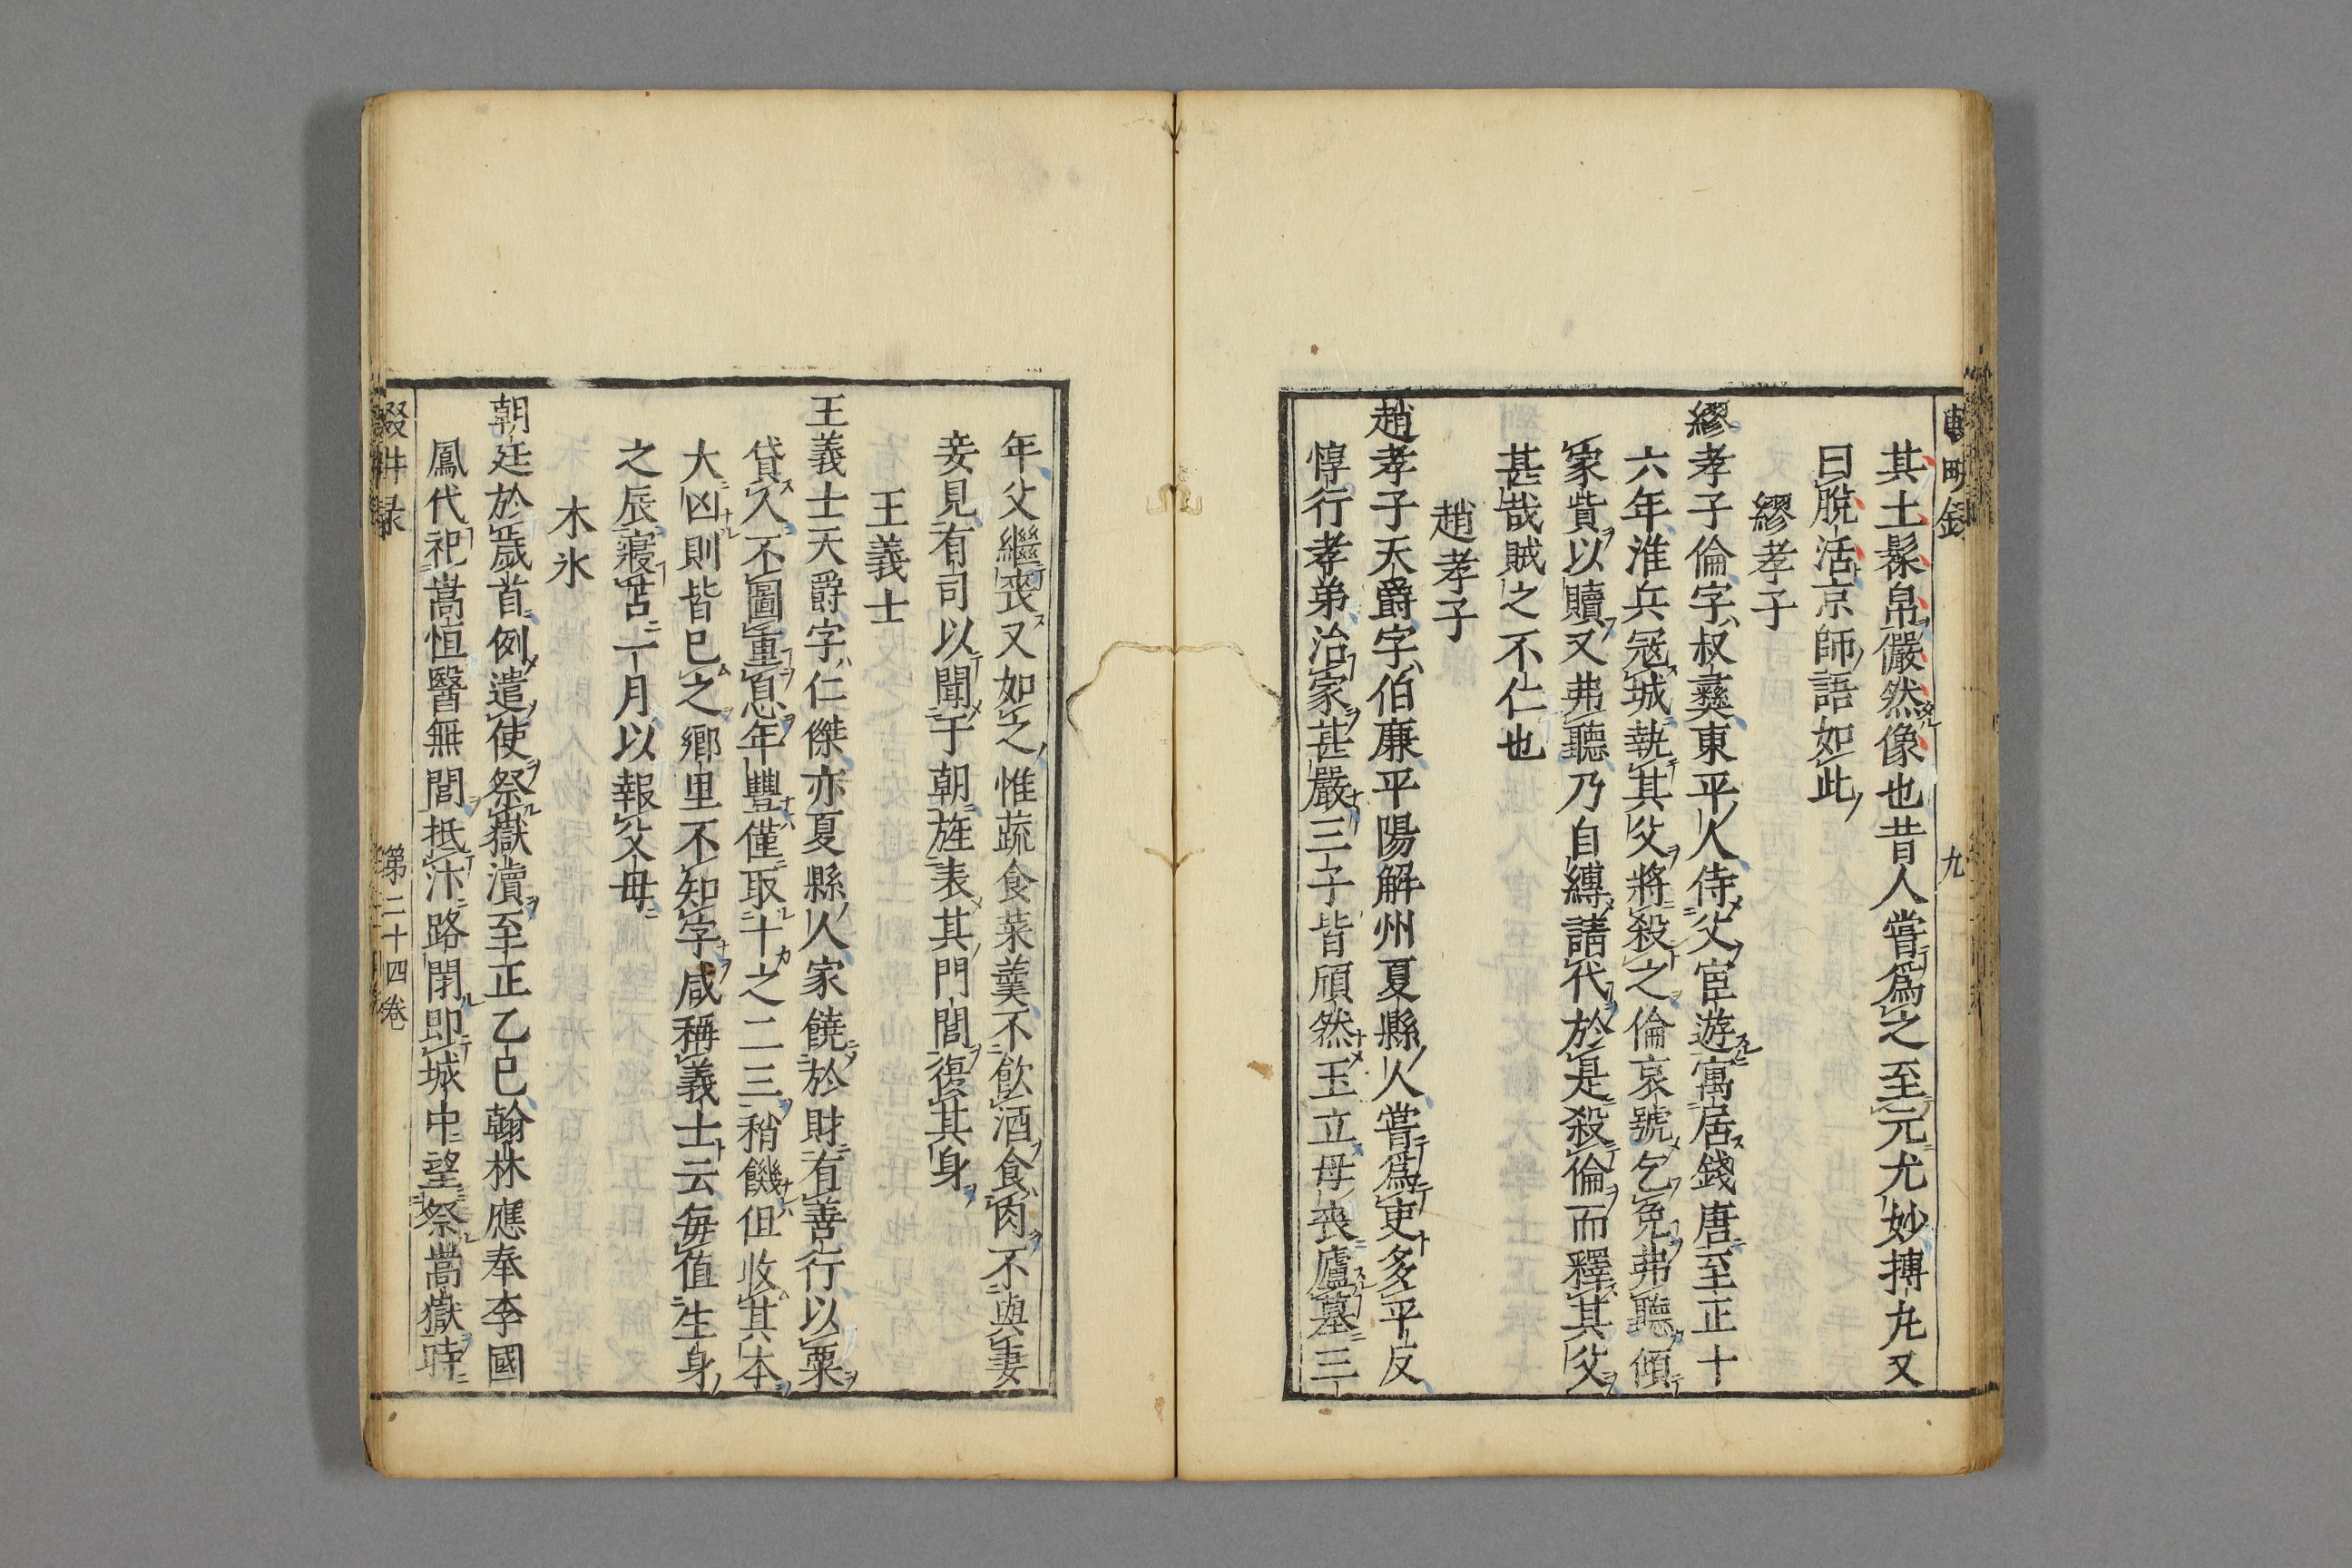 其土髹帛儼然像也昔人嘗爲之至元尤妙摶丸又
曰脫活京師語如此
繆孝子
繆孝子倫字叔彝東平人侍父宦遊寓居錢唐至正十
六年淮兵寇城執其父將殺之倫哀號乞免弗聽傾
家貲以贖又弗聽乃自縛請代於是殺倫而釋其父
甚哉賊之不仁也
趙孝子
趙孝子天爵字伯廉平陽解州夏縣人嘗爲吏多平反
惇行孝弟治家甚嚴三子皆頎然玉立母喪廬墓三
九
年父繼喪又如之惟蔬食菜羹不飲酒食肉不與妻
妾見有司以聞于朝旌表其門閭復其身
王義士
王義士天爵字仁傑亦夏縣人家饒於財有善行以粟
貸人不圖重息年豐僅取十之二三稍饑但收其本
大凶則皆已之鄉里不知字咸稱義士云每值生身
之辰寢苫一月以報父母
木氷
朝廷於歲首例遣使祭嶽瀆至正乙巳翰林應奉李國
鳳代祀嵩恒醫無閭抵汴路閉即城中望祭嵩嶽時
輟耕録
第二十四卷